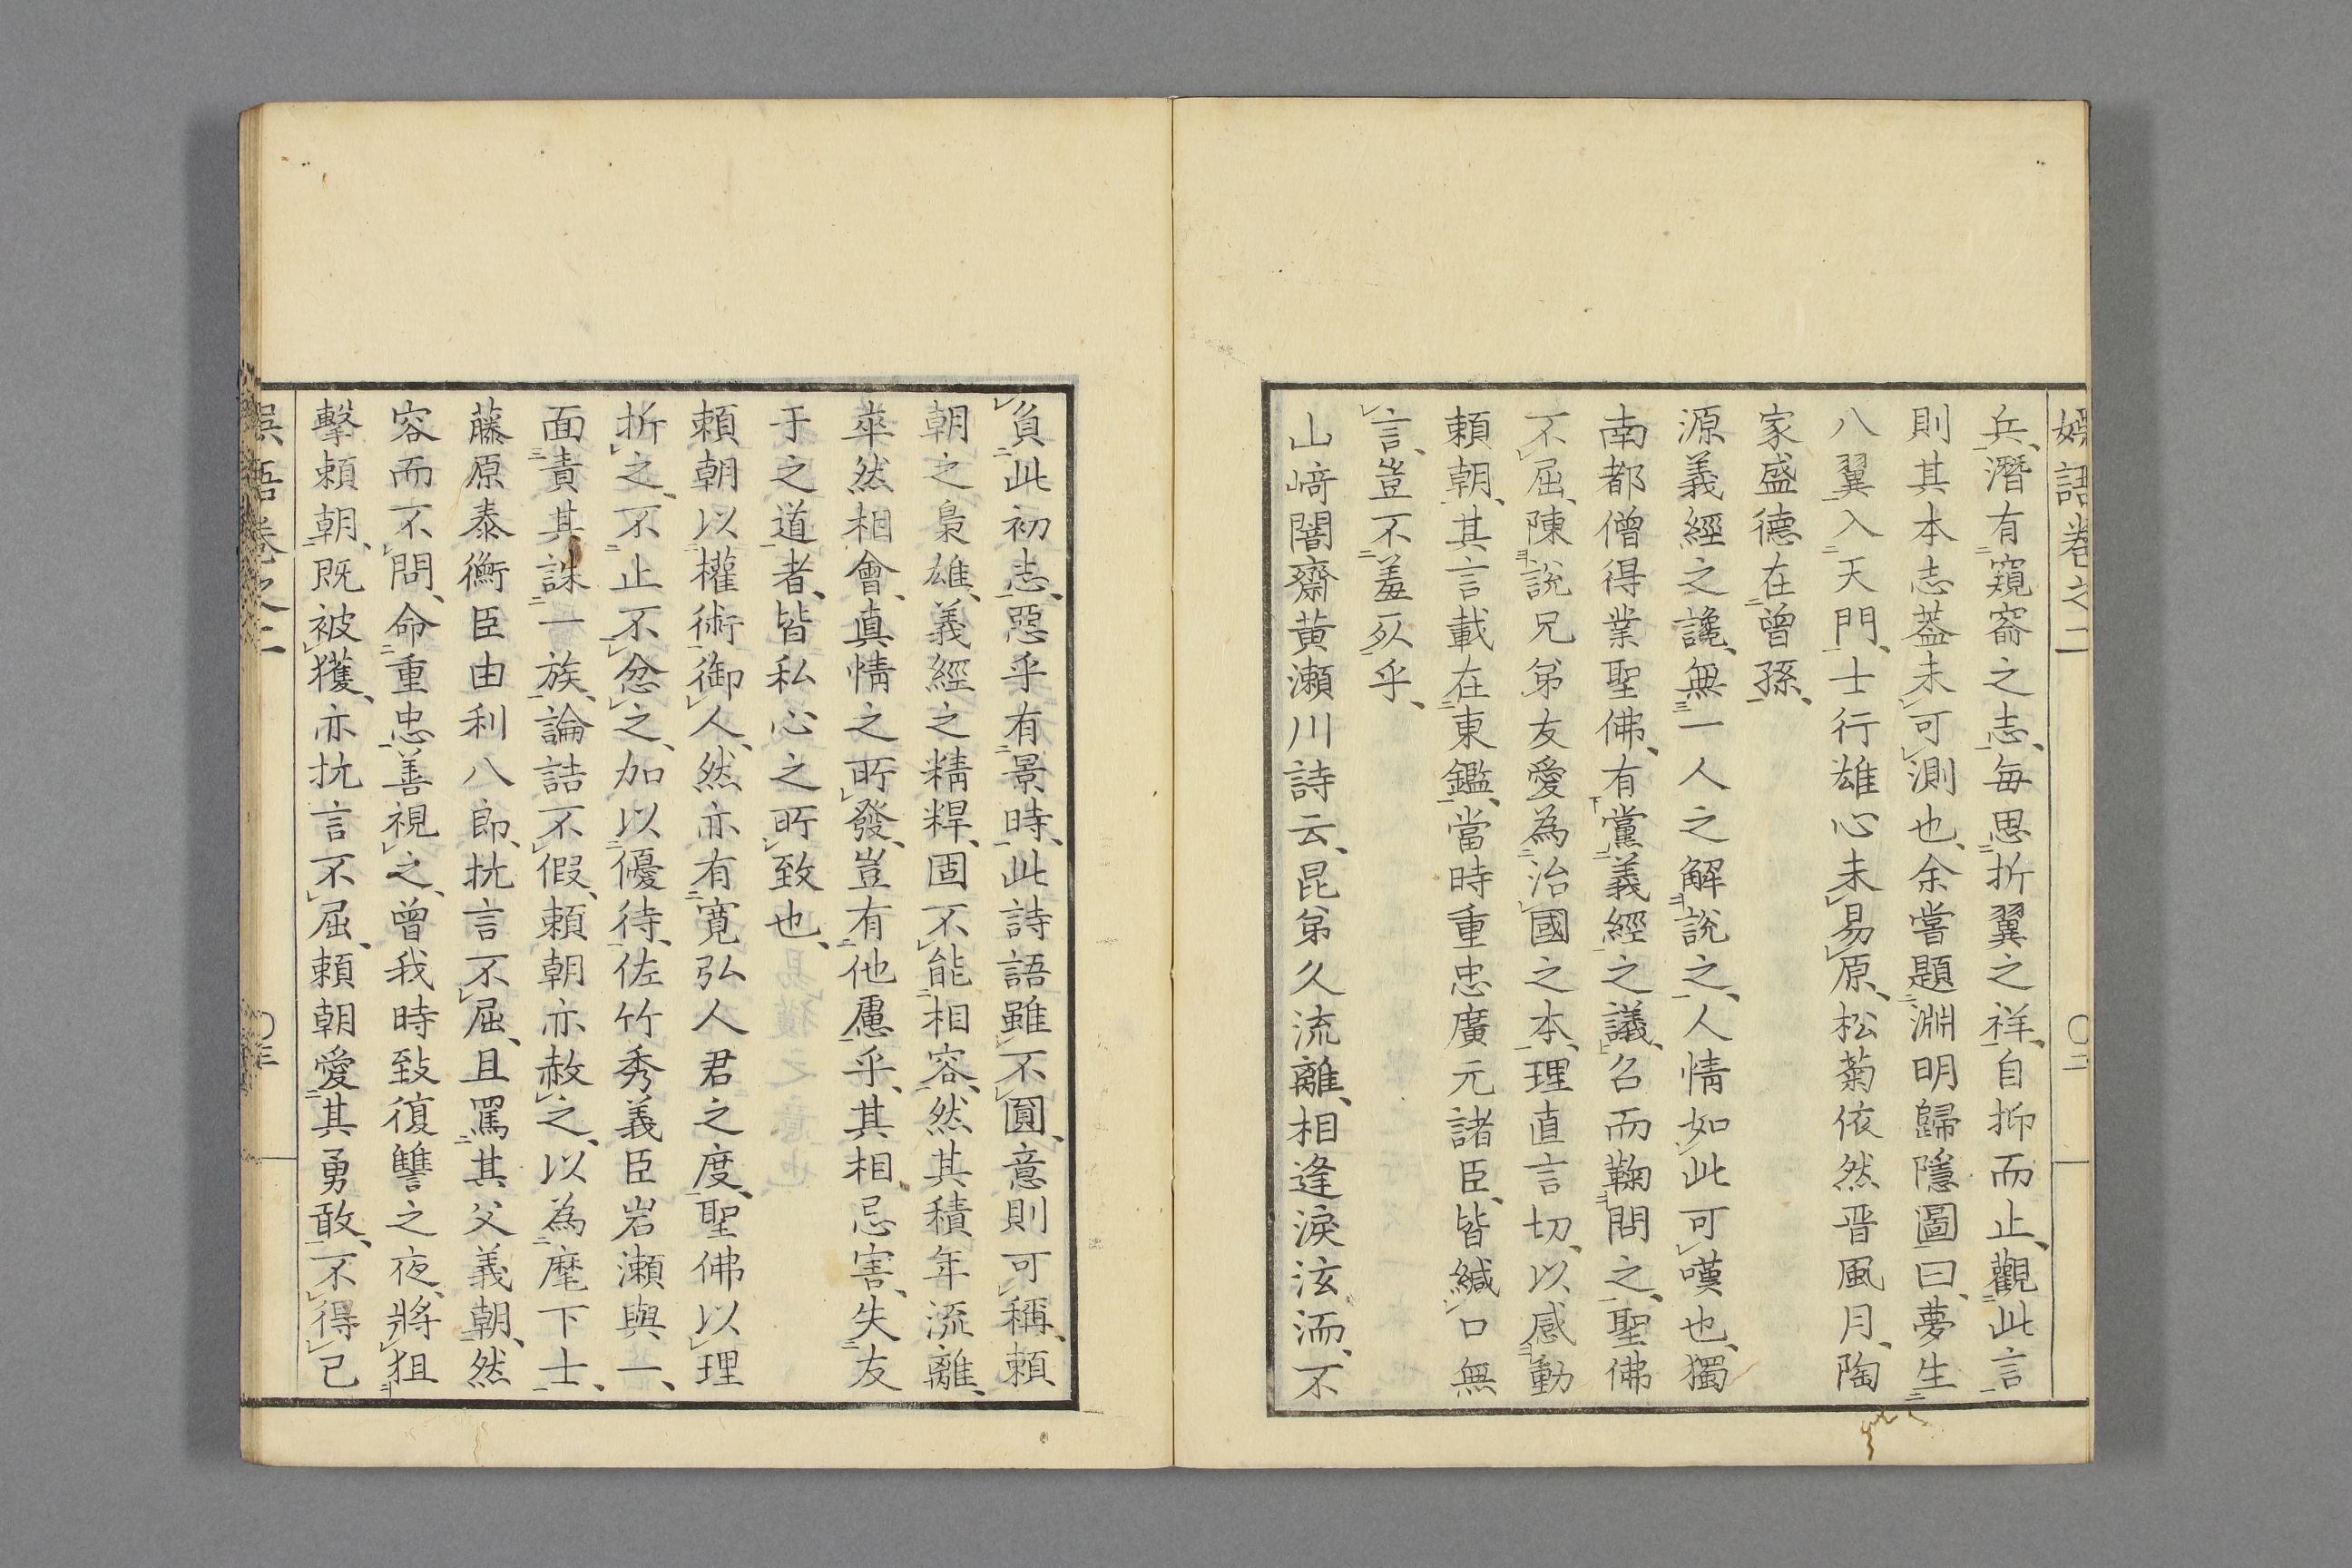 娯語卷之二 〇二
兵、潛有窺窬之志、毎思折翼之祥、自抑而止、觀此言
則其本志葢未可測也、余嘗題淵明歸隱圖曰、夢生
八翼入天門、士行雄心未易原、松菊依然晋風月、陶
家盛德在曾孫、
源義經之讒、無一人之解說之、人情如此可嘆也、獨
南都僧得業聖佛、有黨義經之議、召而鞠問之、聖佛
不屈、陳說兄弟友愛為治國之本、理直言切、以感動
頼朝、其言載在東鑑、當時重忠廣元諸臣、皆緘口無
言、豈不羞死乎、
山﨑闇齋黄瀬川詩云、昆弟久流離、相逢淚泫洏、不
負此初志、惡乎有景時、此詩語雖不圓、意則可稱、頼
朝之梟雄、義經之精桿、固不能相容、然其積年流離、
卒然相會、真情之所發、豈有他慮乎、其相忌害、失友
于之道者、皆私心之所致也、
頼朝以權術御人、然亦有寛弘人君之度、聖佛以理
折之、不止不忿之、加以優待、佐竹秀義臣岩瀬與一、
面責其誅一族、論詰不假、頼朝亦赦之、以為麾下士、
藤原泰衡臣由利八郎、抗言不屈、且罵其父義朝、然
容而不問、命重忠善視之、曾我時致復讐之夜、將狙
擊頼朝、既被獲、亦抗言不屈、頼朝愛其勇敢、不得已
娯語卷之二 〇三